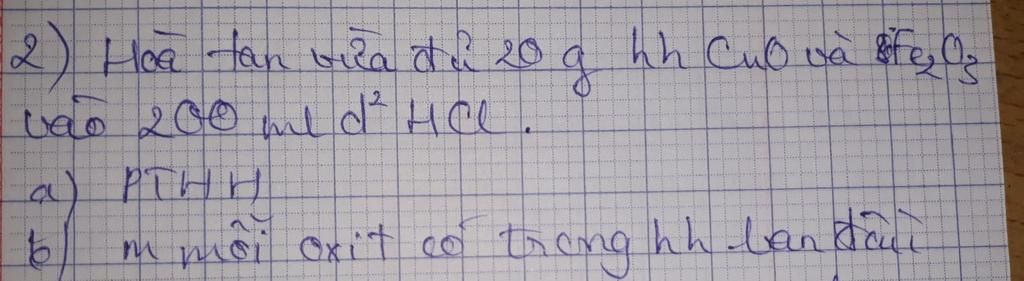 2) Hoà tan vừa đủ 20 g hh CuO và Fe₂O₃
vào 200 ml d² HCl.
a) PTHH
b) m mỗi oxit có trong hh ban đầu